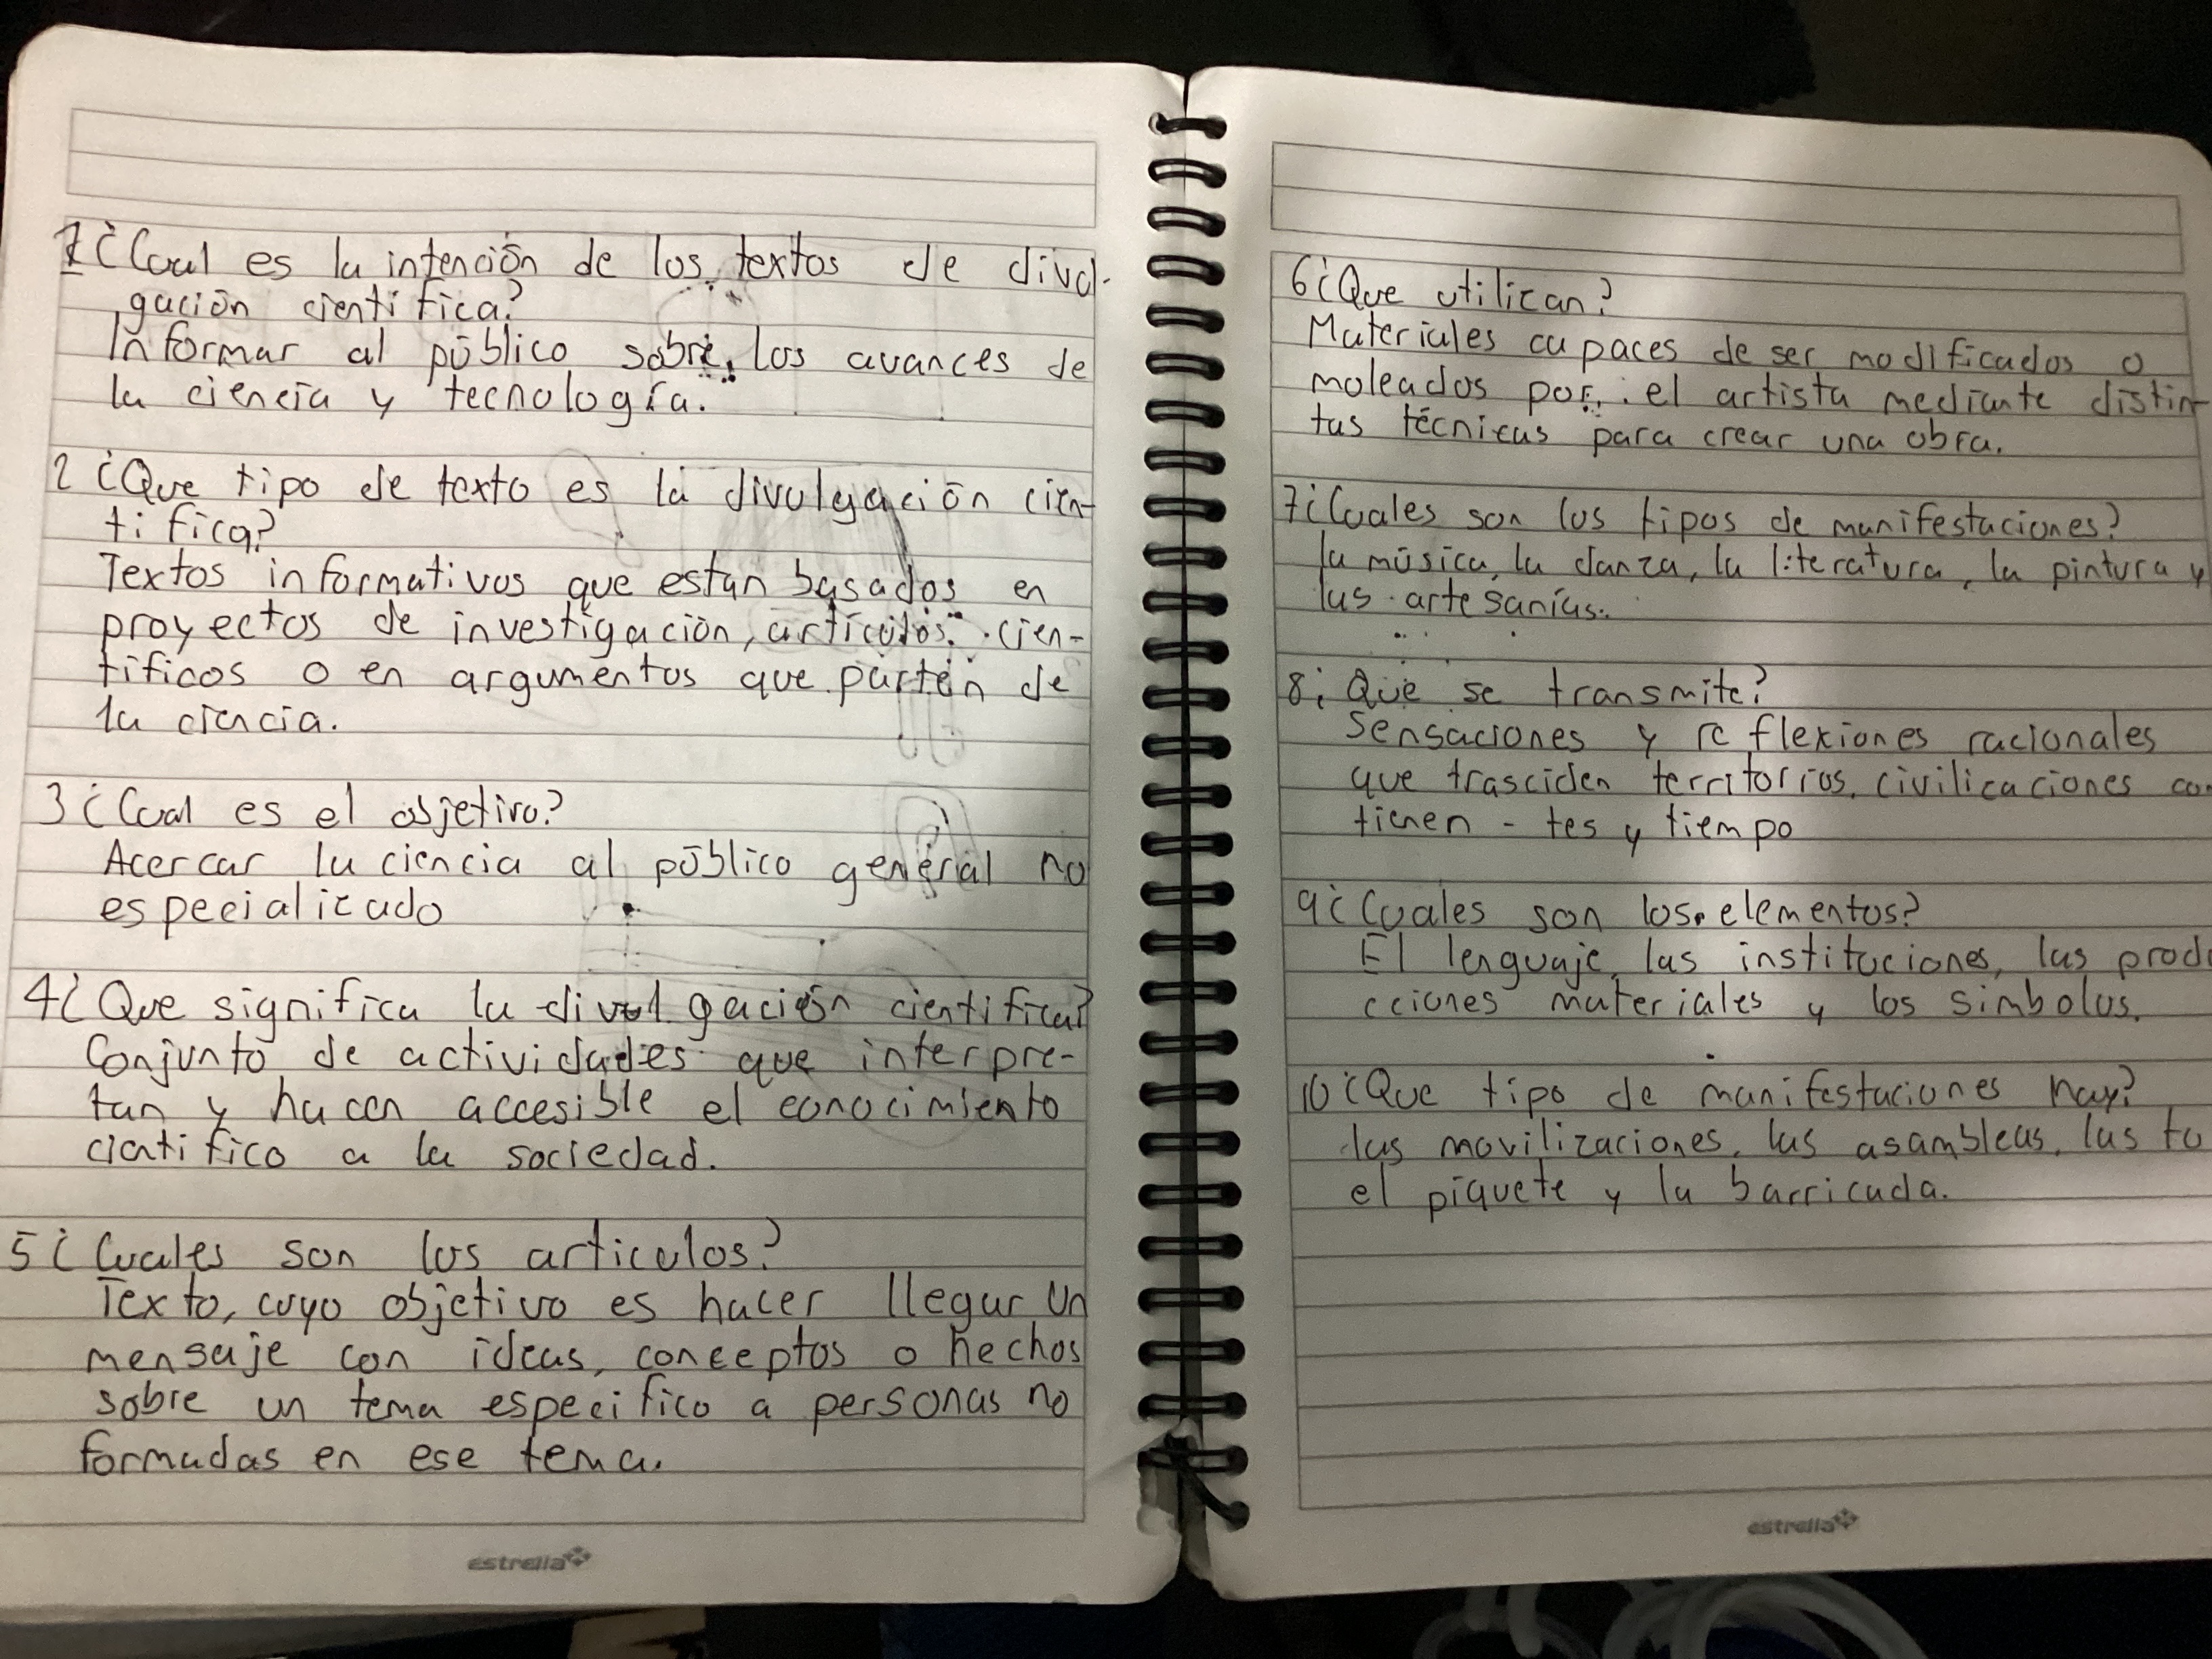 1¿Cual es la intención de los textos de divul-
gación cientifica?
Informar al público sobre los avances de
la ciencia y tecnología.
2 ¿Que tipo de texto es la divulgación cien-
tifica?
Textos informativos que estan basados en
proyectos de investigación, artículos cien-
tificos o en argumentos que parten de
la ciencia.
3 ¿Cual es el objetivo?
Acercar la ciencia al público general no
especializado
4¿ Que significa la divulgación cientifica?
Conjunto de actividades que interpre-
tan y hacen accesible el conocimiento
cientifico a la sociedad.
5 ¿Cuales son los articulos?
Texto, cuyo objetivo es hacer llegar un
mensaje con ideas, conceptos o hechos
sobre un tema especifico a personas no
formadas en ese tema.
estrella
6¿Que utilizan?
Materiales capaces de ser modificados o
moleados por el artista mediante distin-
tas técnicas para crear una obra.
7¿Cuales son los tipos de manifestaciones?
la música, la danza, la literatura, la pintura y
las artesanías.
8¿ Que se transmite?
Sensaciones y reflexiones racionales
que trasciden territorios, civilicaciones con
tienen - tes y tiempo
9¿Cuales son los elementos?
El lenguaje, las instituciones, las produ
cciones materiales y los simbolos.
10 ¿Que tipo de manifestaciones hay?
las movilizaciones, las asambleas, las
el piquete y la barricada.
estrella